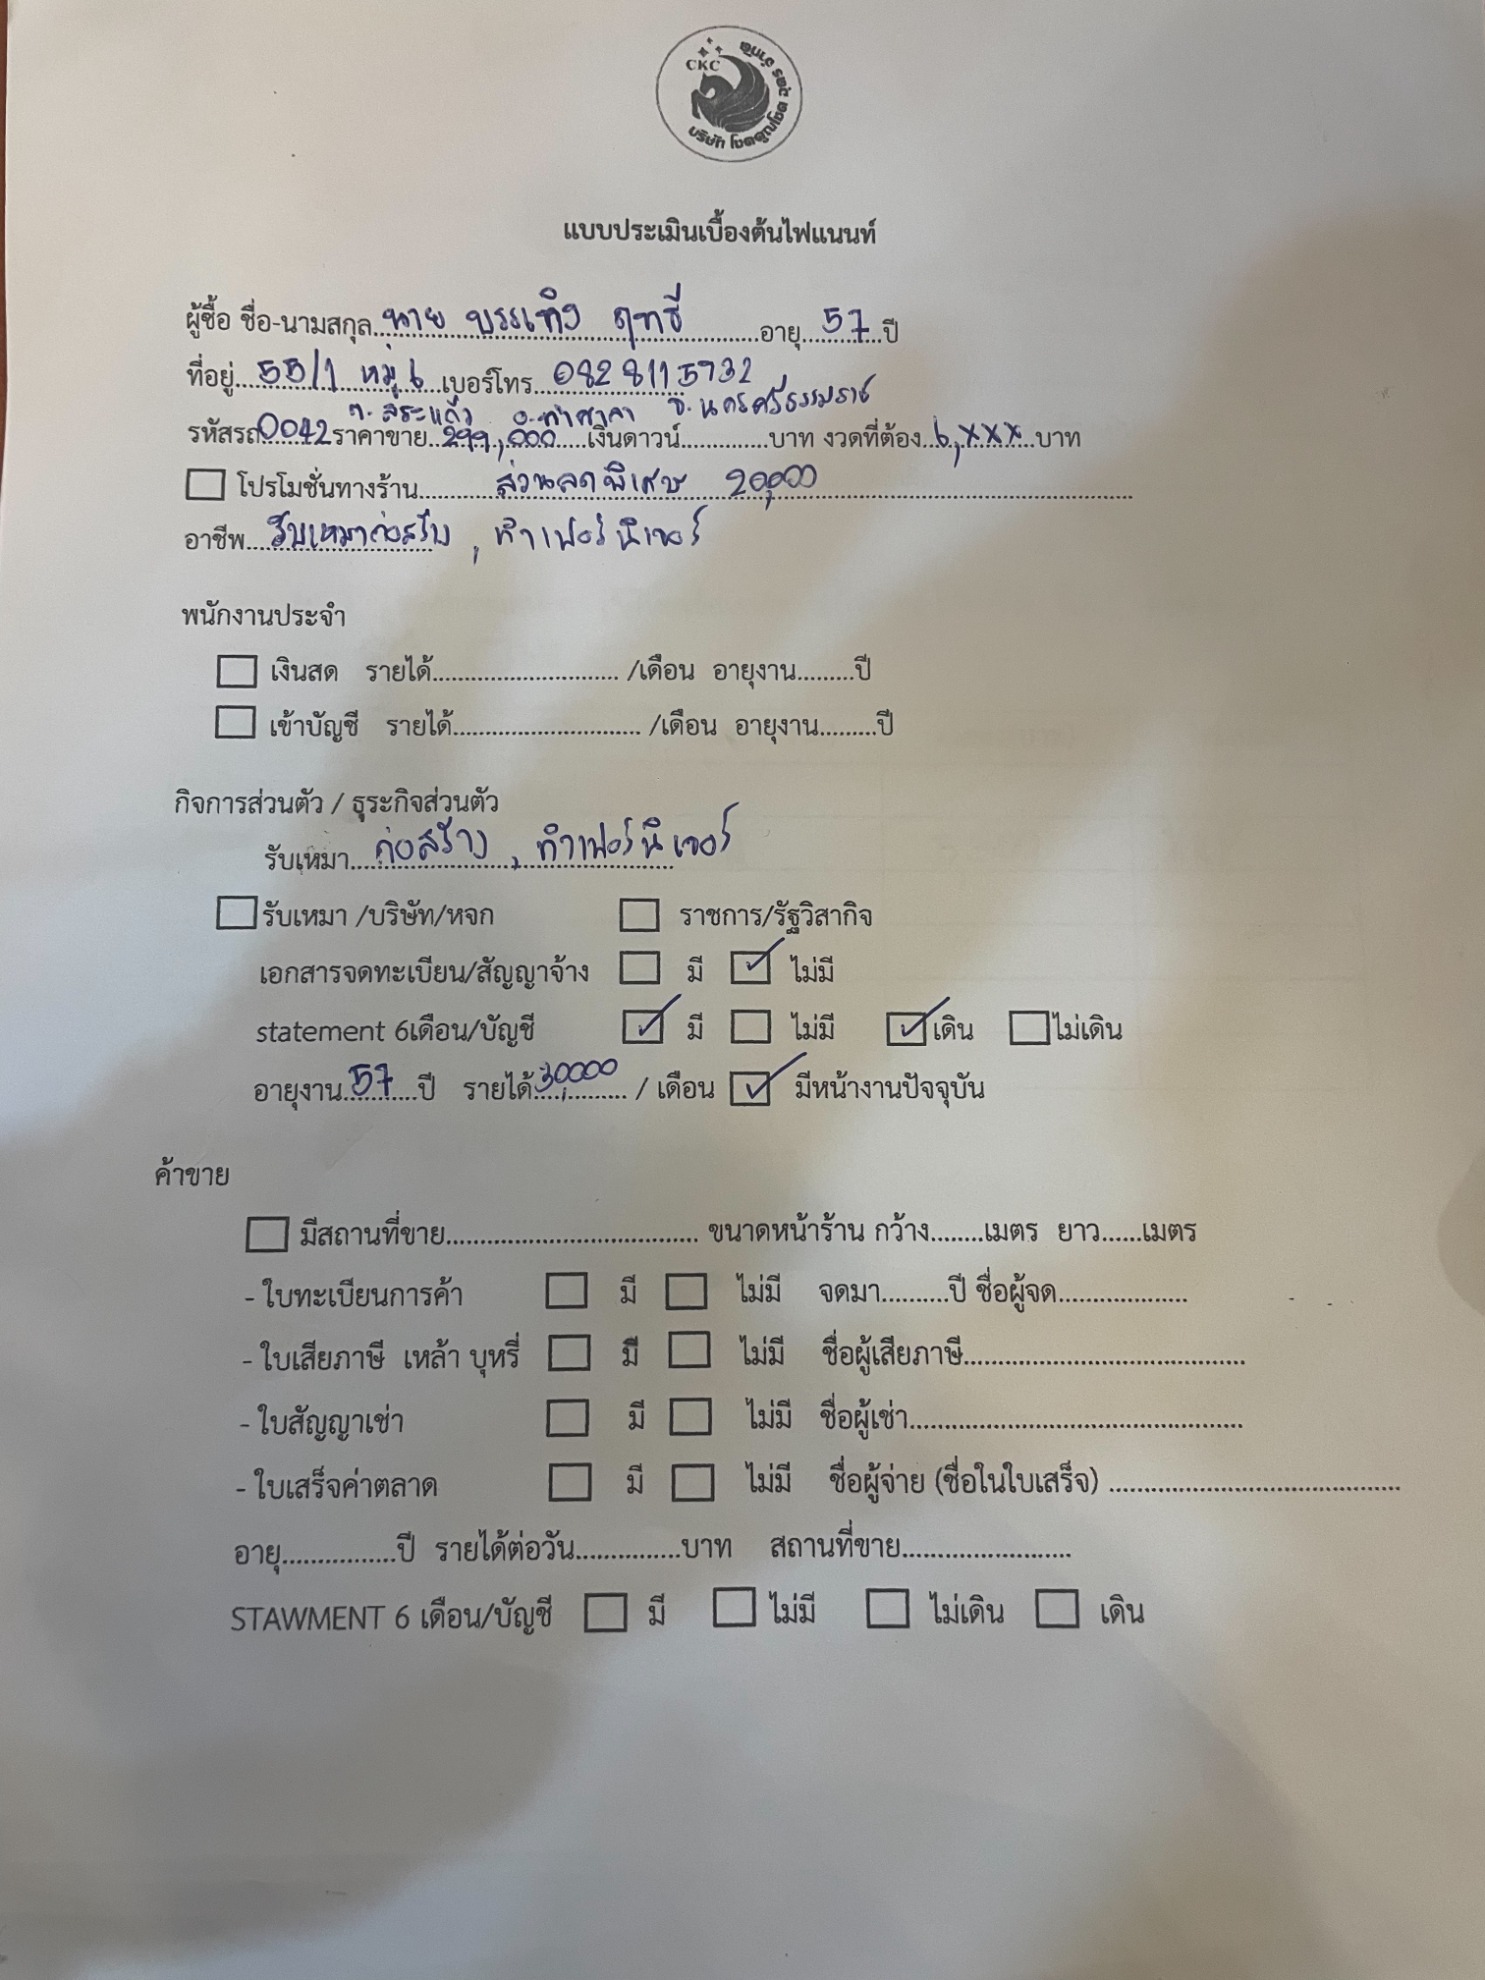 CKC
บริษัท โชคคูณโชค 9 จำกัด
แบบประเมินเบื้องต้นไฟแนนท์
ผู้ซื้อ ชื่อ-นามสกุล....นาย บรรเทิง ฤทธิ์....อายุ....57....ปี
ที่อยู่....55/1 หมู่ 6....เบอร์โทร....0828115732
ต. สระแก้ว อ.ท่าศาลา จ. นครศรีธรรมราช
รหัสรถ0042ราคาขาย....299,000....เงินดาวน์............บาท งวดที่ต้อง..6,xxx..บาท
☐ โปรโมชั่นทางร้าน..........ส่วนลดพิเศษ 20,000..........
อาชีพ....รับเหมาก่อสร้าง, ทำเฟอร์นิเจอร์
พนักงานประจำ
☐ เงินสด รายได้............................ /เดือน อายุงาน.........ปี
☐ เข้าบัญชี รายได้............................ /เดือน อายุงาน.........ปี
กิจการส่วนตัว / ธุระกิจส่วนตัว
รับเหมา....ก่อสร้าง, ทำเฟอร์นิเจอร์
☐ รับเหมา /บริษัท/หจก ☐ ราชการ/รัฐวิสากิจ
เอกสารจดทะเบียน/สัญญาจ้าง ☐ มี ☑ ไม่มี
statement 6เดือน/บัญชี ☑ มี ☐ ไม่มี ☑ เดิน ☐ ไม่เดิน
อายุงาน..57..ปี รายได้30,000...... / เดือน ☑ มีหน้างานปัจจุบัน
ค้าขาย
☐ มีสถานที่ขาย...................................... ขนาดหน้าร้าน กว้าง........เมตร ยาว......เมตร
- ใบทะเบียนการค้า ☐ มี ☐ ไม่มี จดมา..........ปี ชื่อผู้จด...................
- ใบเสียภาษี เหล้า บุหรี่ ☐ มี ☐ ไม่มี ชื่อผู้เสียภาษี..........................................
- ใบสัญญาเช่า ☐ มี ☐ ไม่มี ชื่อผู้เช่า..................................................
- ใบเสร็จค่าตลาด ☐ มี ☐ ไม่มี ชื่อผู้จ่าย (ชื่อในใบเสร็จ) ..........................................
อายุ.................ปี รายได้ต่อวัน...............บาท สถานที่ขาย.........................
STAWMENT 6 เดือน/บัญชี ☐ มี ☐ ไม่มี ☐ ไม่เดิน ☐ เดิน